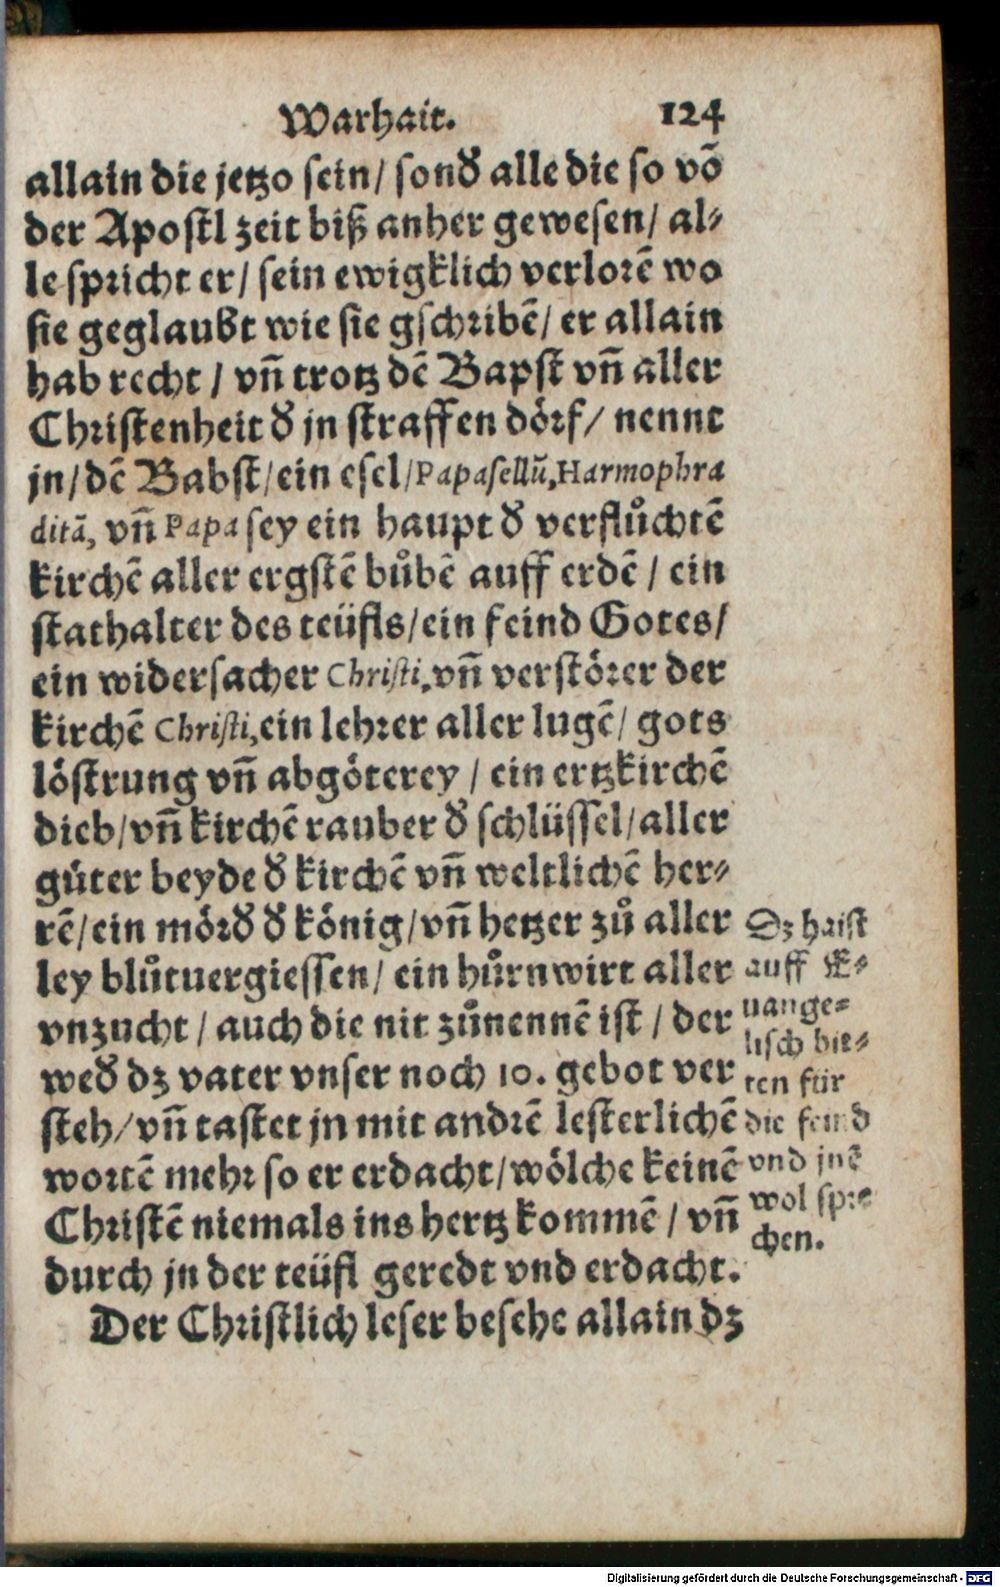 Warhait. 124
allain die jetzo sein/ sonđ alle die so võ
der Apostl zeit biß anher gewesen/ al⸗
le spricht er/ sein ewigklich verlorẽ wo
sie geglaubt wie sie gschribẽ/ er allain
hab recht / vñ trotz dẽ Bapst vñ aller
Christenheit đ jn straffen dörf/ nennt
jn/ dẽ Babst/ ein esel/ Papasellũ, Harmophra
ditã, vñ Papa sey ein haupt đ verflůchtẽ
kirchẽ aller ergstẽ bůbẽ auff erdẽ / ein
stathalter des teüfls/ ein feind Gotes/
ein widersacher Christi, vñ verstörer der
kirchẽ Christi, ein lehrer aller lugẽ/ gots
löstrung vñ abgöterey / ein ertzkirchẽ
dieb/ vñ kirchẽ rauber đ schlüssel/ aller
güter beyde đ kirchẽ vñ weltlichẽ her⸗
rẽ/ ein mörđ đ könig/ vñ hetzer zů aller
ley blůtuergiessen/ ein hůrnwirt aller
vnzucht / auch die nit zůnennẽ ist / der
weđ dz vater vnser noch 10. gebot ver
steh/ vñ tastet jn mit andrẽ lesterlichẽ
wortẽ mehr so er erdacht/ wölche keinẽ
Christẽ niemals ins hertz kommẽ / vñ
durch jn der teüfl geredt vnd erdacht.
Der Christlich leser besehe allain dz
Dz haist
auff E⸗
uange⸗
lisch bit⸗
ten für
die feind
vnd jnẽ
wol spre
chen.
Digitalisierung gefördert durch die Deutsche Forschungsgemeinschaft - DFG